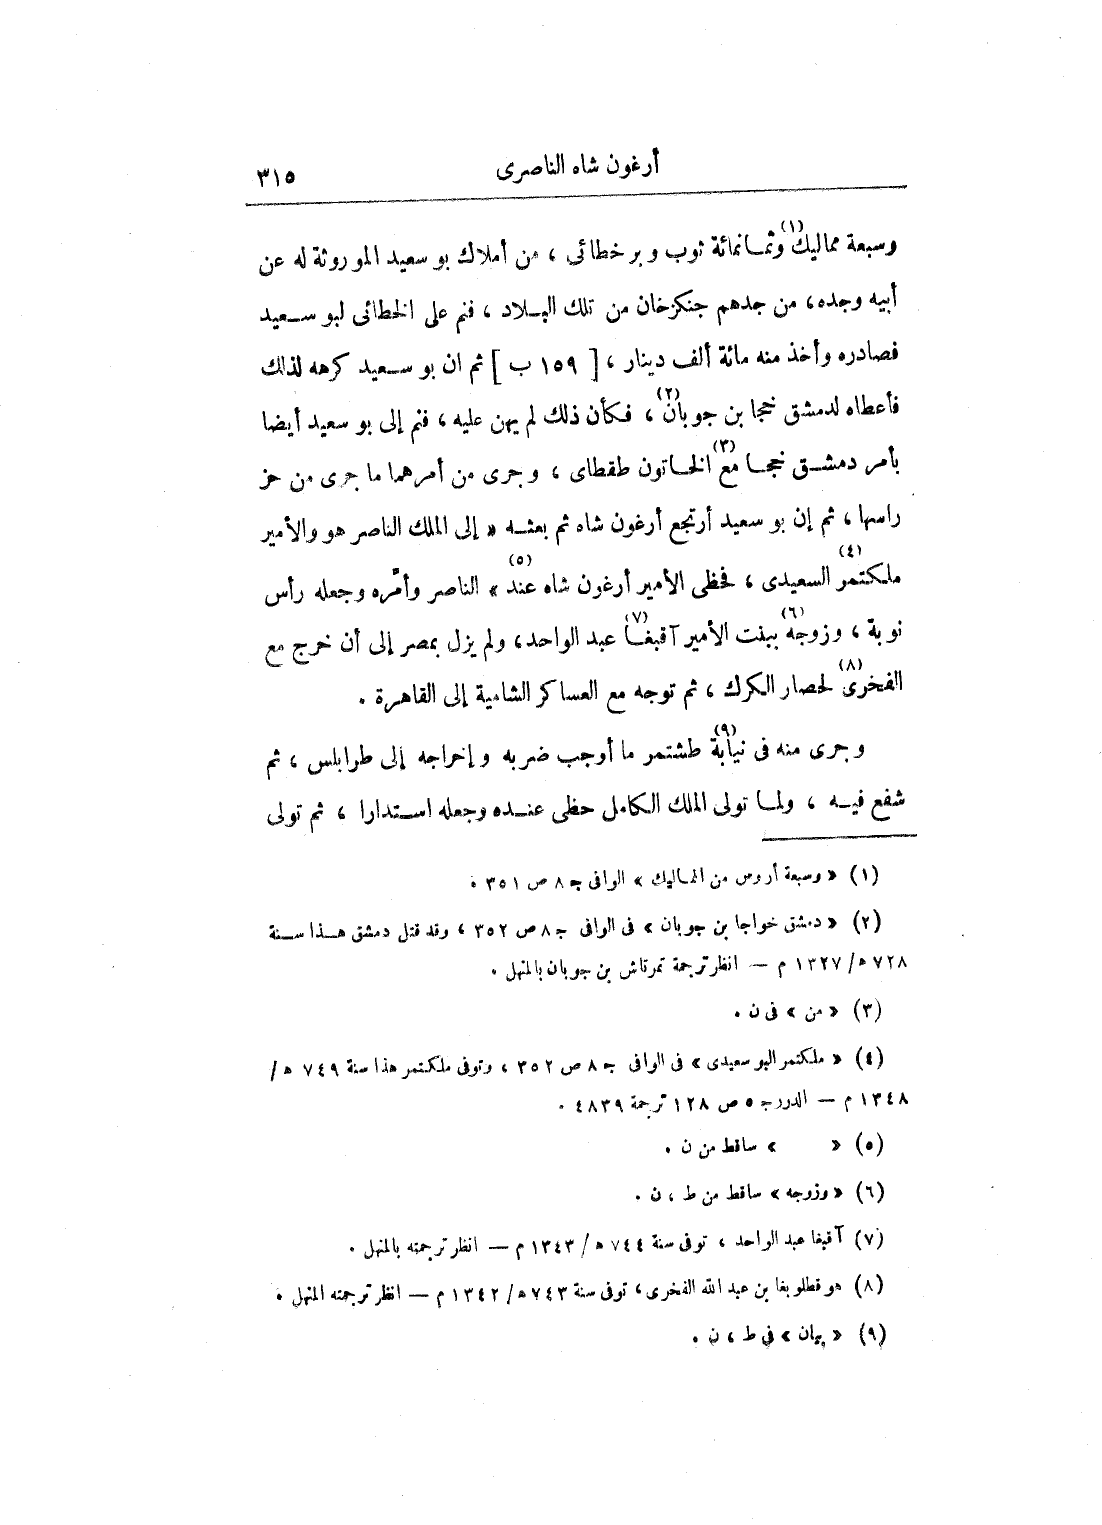 أرغون شاه الناصرى ٣١٥
وسبعة مماليك(١) وثمانمائة ثوب وبر خطائى ، من أملاك بو سعيد الموروثة له عن
أبيه وجده، من جدهم جنكزخان من تلك البلاد ، فنم على الخطائى لبو سعيد
فصادره وأخذ منه مائة ألف دينار ، [ ١٥٩ ب ] ثم ان بو سعيد كرهه لذلك
فأعطاه لدمشق خجا بن جوبان(٢) ، فكأن ذلك لم يهن عليه ، فنم إلى بو سعيد أيضا
بأمر دمشق خجا مع(٣) الخاتون طقطاى ، وجرى من أمرهما ما جرى من حز
راسها ، ثم إن بو سعيد أرتجع أرغون شاه ثم بعثه « إلى الملك الناصر هو والأمير
ملكتمر(٤) السعيدى ، فحظى الأمير أرغون شاه عند(٥) » الناصر وأمّره وجعله رأس
نوبة ، وزوجه(٦) ببنت الأمير آقبغا(٧) عبد الواحد، ولم يزل بمصر إلى أن خرج مع
الفخرى(٨) لحصار الكرك ، ثم توجه مع العساكر الشامية إلى القاهرة .
وجرى منه فى نيابة(٩) طشتمر ما أوجب ضربه وإخراجه إلى طرابلس ، ثم
شفع فيه ، ولما تولى الملك الكامل حظى عنده وجعله استدارا ، ثم تولى
(١) « وسبعة أروس من المماليك » الوافى ج ٨ ص ٣٥١ .
(٢) « دمشق خواجا بن جوبان » فى الوافى ج ٨ ص ٣٥٢ ، وقد قتل دمشق هذا سنة
٧٢٨ ه/ ١٣٢٧ م — انظر ترجمة تمرتاش بن جوبان بالمنهل .
(٣) « من » فى ن .
(٤) « ملكتمر البو سعيدى » فى الوافى ج ٨ ص ٣٥٢ ، وتوفى ملكتمر هذا سنة ٧٤٩ ه/
١٣٤٨ م — الدرر ج ٥ ص ١٢٨ ترجمة ٤٨٣٩ .
(٥) « » ساقط من ن .
(٦) « وزوجه » ساقط من ط ، ن .
(٧) آقبغا عبد الواحد ، توفى سنة ٧٤٤ ه/ ١٣٤٣ م — انظر ترجمته بالمنهل .
(٨) هو قطلوبغا بن عبد الله الفخرى، توفى سنة ٧٤٣ ه/ ١٣٤٢ م — انظر ترجمته المنهل .
(٩) « بيان » فى ط ، ن .